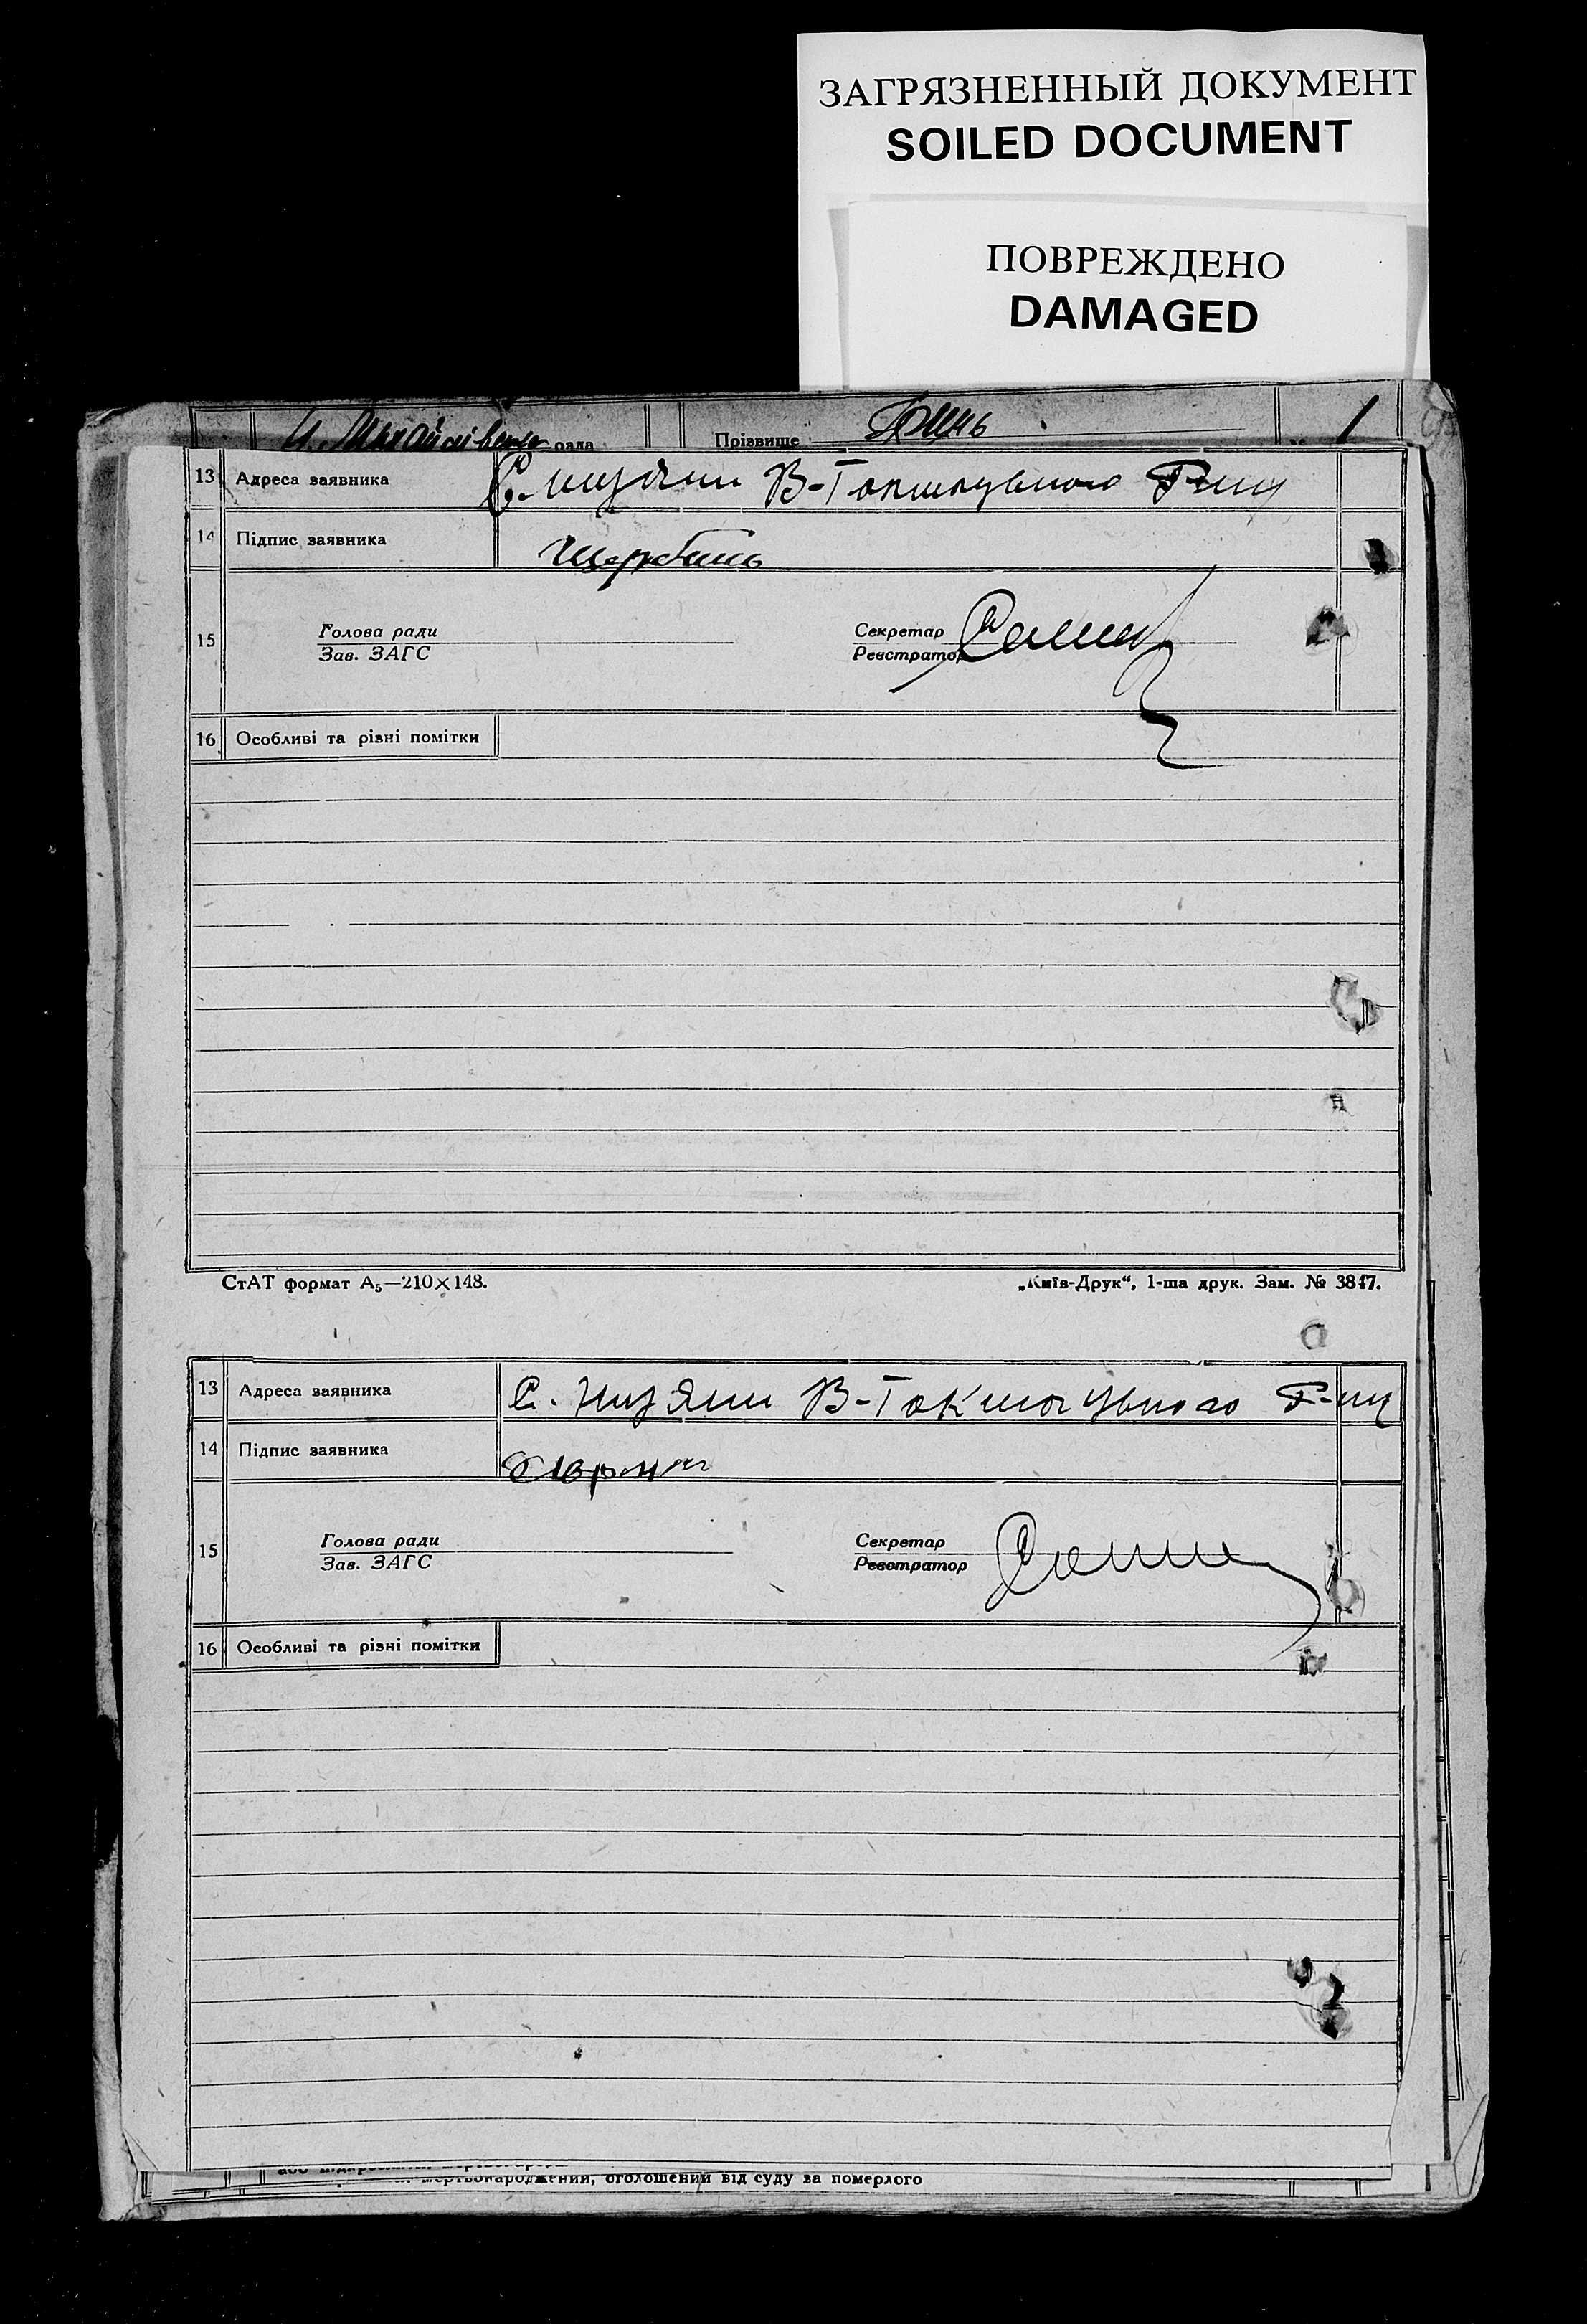 ЗАГРЯЗНЕННЫЙ ДОКУМЕНТ
SOILED DOCUMENT
ПОВРЕЖДЕНО
DAMAGED
рада Прізвище 1
13 Адреса заявника С. Низяни В-Токмацького Р-ну
14 Підпис заявника Щербань
15 Голова ради Секретар
Зав. ЗАГС Реєстратор
16 Особливі та різні помітки
СтАТ формат А₅—210×148. „Київ-Друк“, 1-ша друк. Зам. № 3847.
13 Адреса заявника С. Низяни В-Токмацького Р-ну
14 Підпис заявника
15 Голова ради Секретар
Зав. ЗАГС Реєстратор
16 Особливі та різні помітки
мертвонароджений, оголошений від суду за померлого